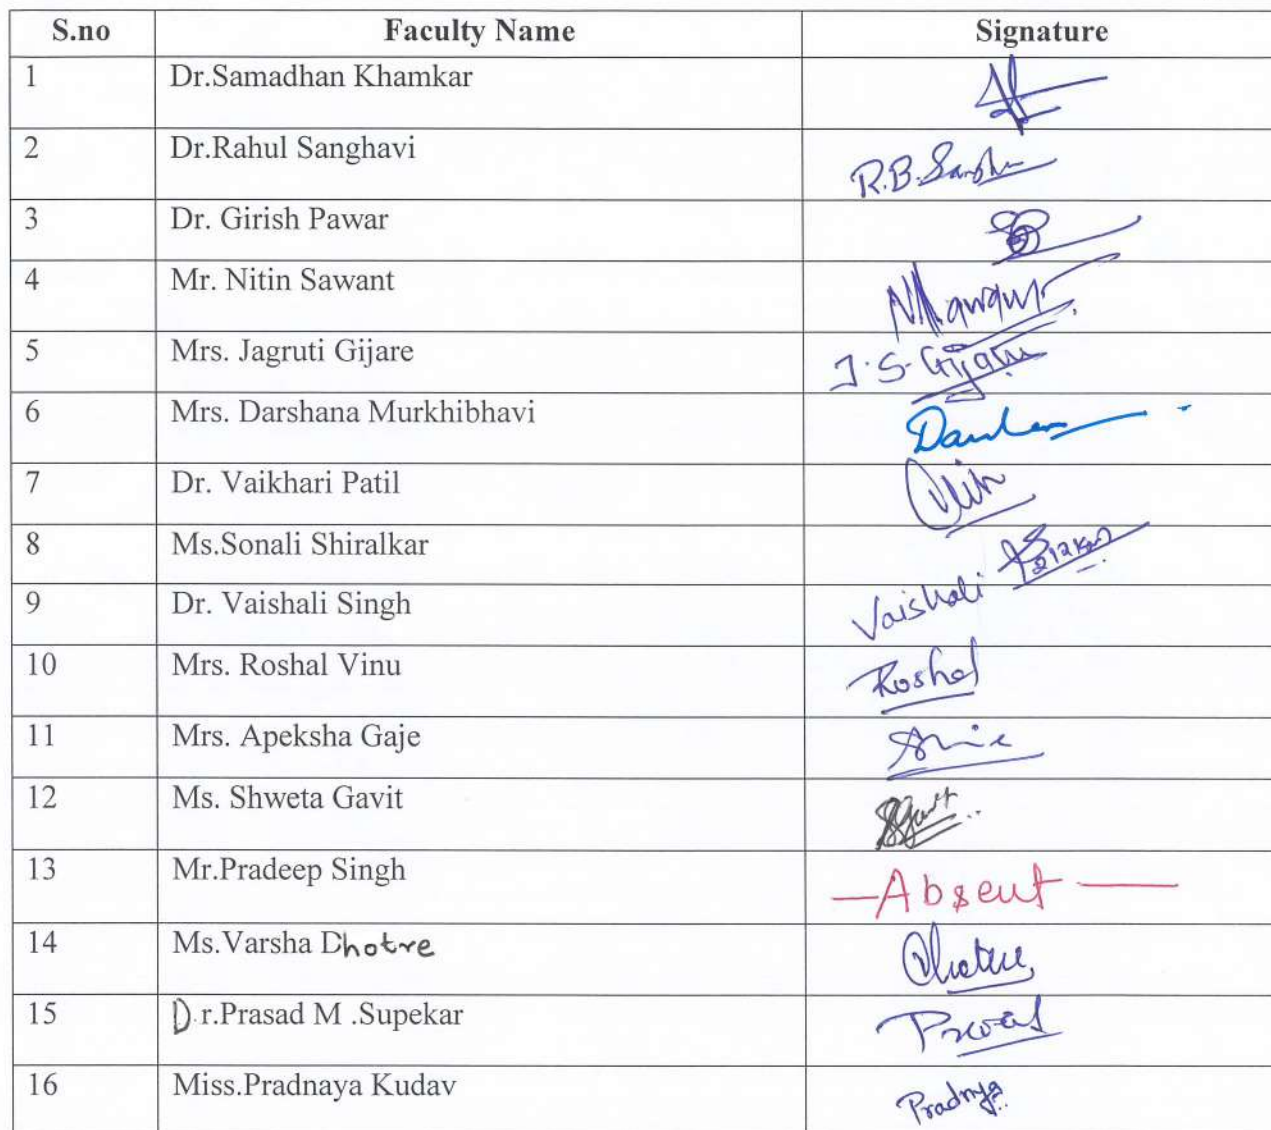 S.no Faculty Name Signature
1 Dr.Samadhan Khamkar
2 Dr.Rahul Sanghavi R.B.
3 Dr. Girish Pawar
4 Mr. Nitin Sawant
5 Mrs. Jagruti Gijare J.S. Gijare
6 Mrs. Darshana Murkhibhavi
7 Dr. Vaikhari Patil
8 Ms.Sonali Shiralkar
9 Dr. Vaishali Singh Vaishali
10 Mrs. Roshal Vinu Roshal
11 Mrs. Apeksha Gaje
12 Ms. Shweta Gavit
13 Mr.Pradeep Singh —Absent—
14 Ms.Varsha Dhotre
15 Dr.Prasad M .Supekar
16 Miss.Pradnaya Kudav Pradnya